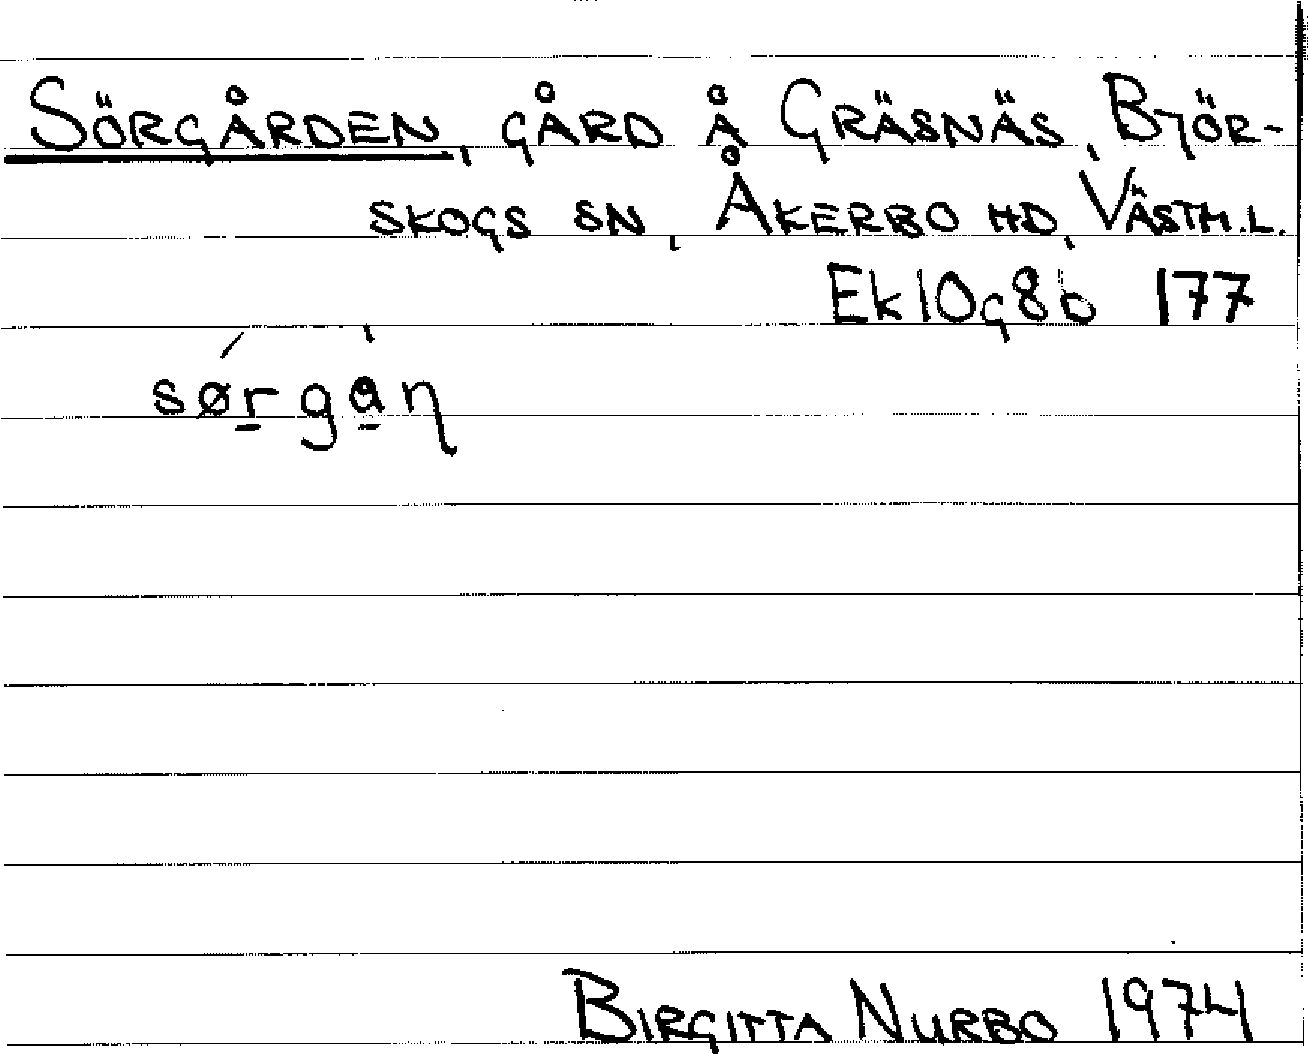 SÖRGÅRDEN, GÅRD Å GRÄSNÄS, BJÖR-
SKOGS SN, ÅKERBO HD, VÄSTM.L.
Ek10g8b 177
sørgan
BIRGITTA NURBO 1974